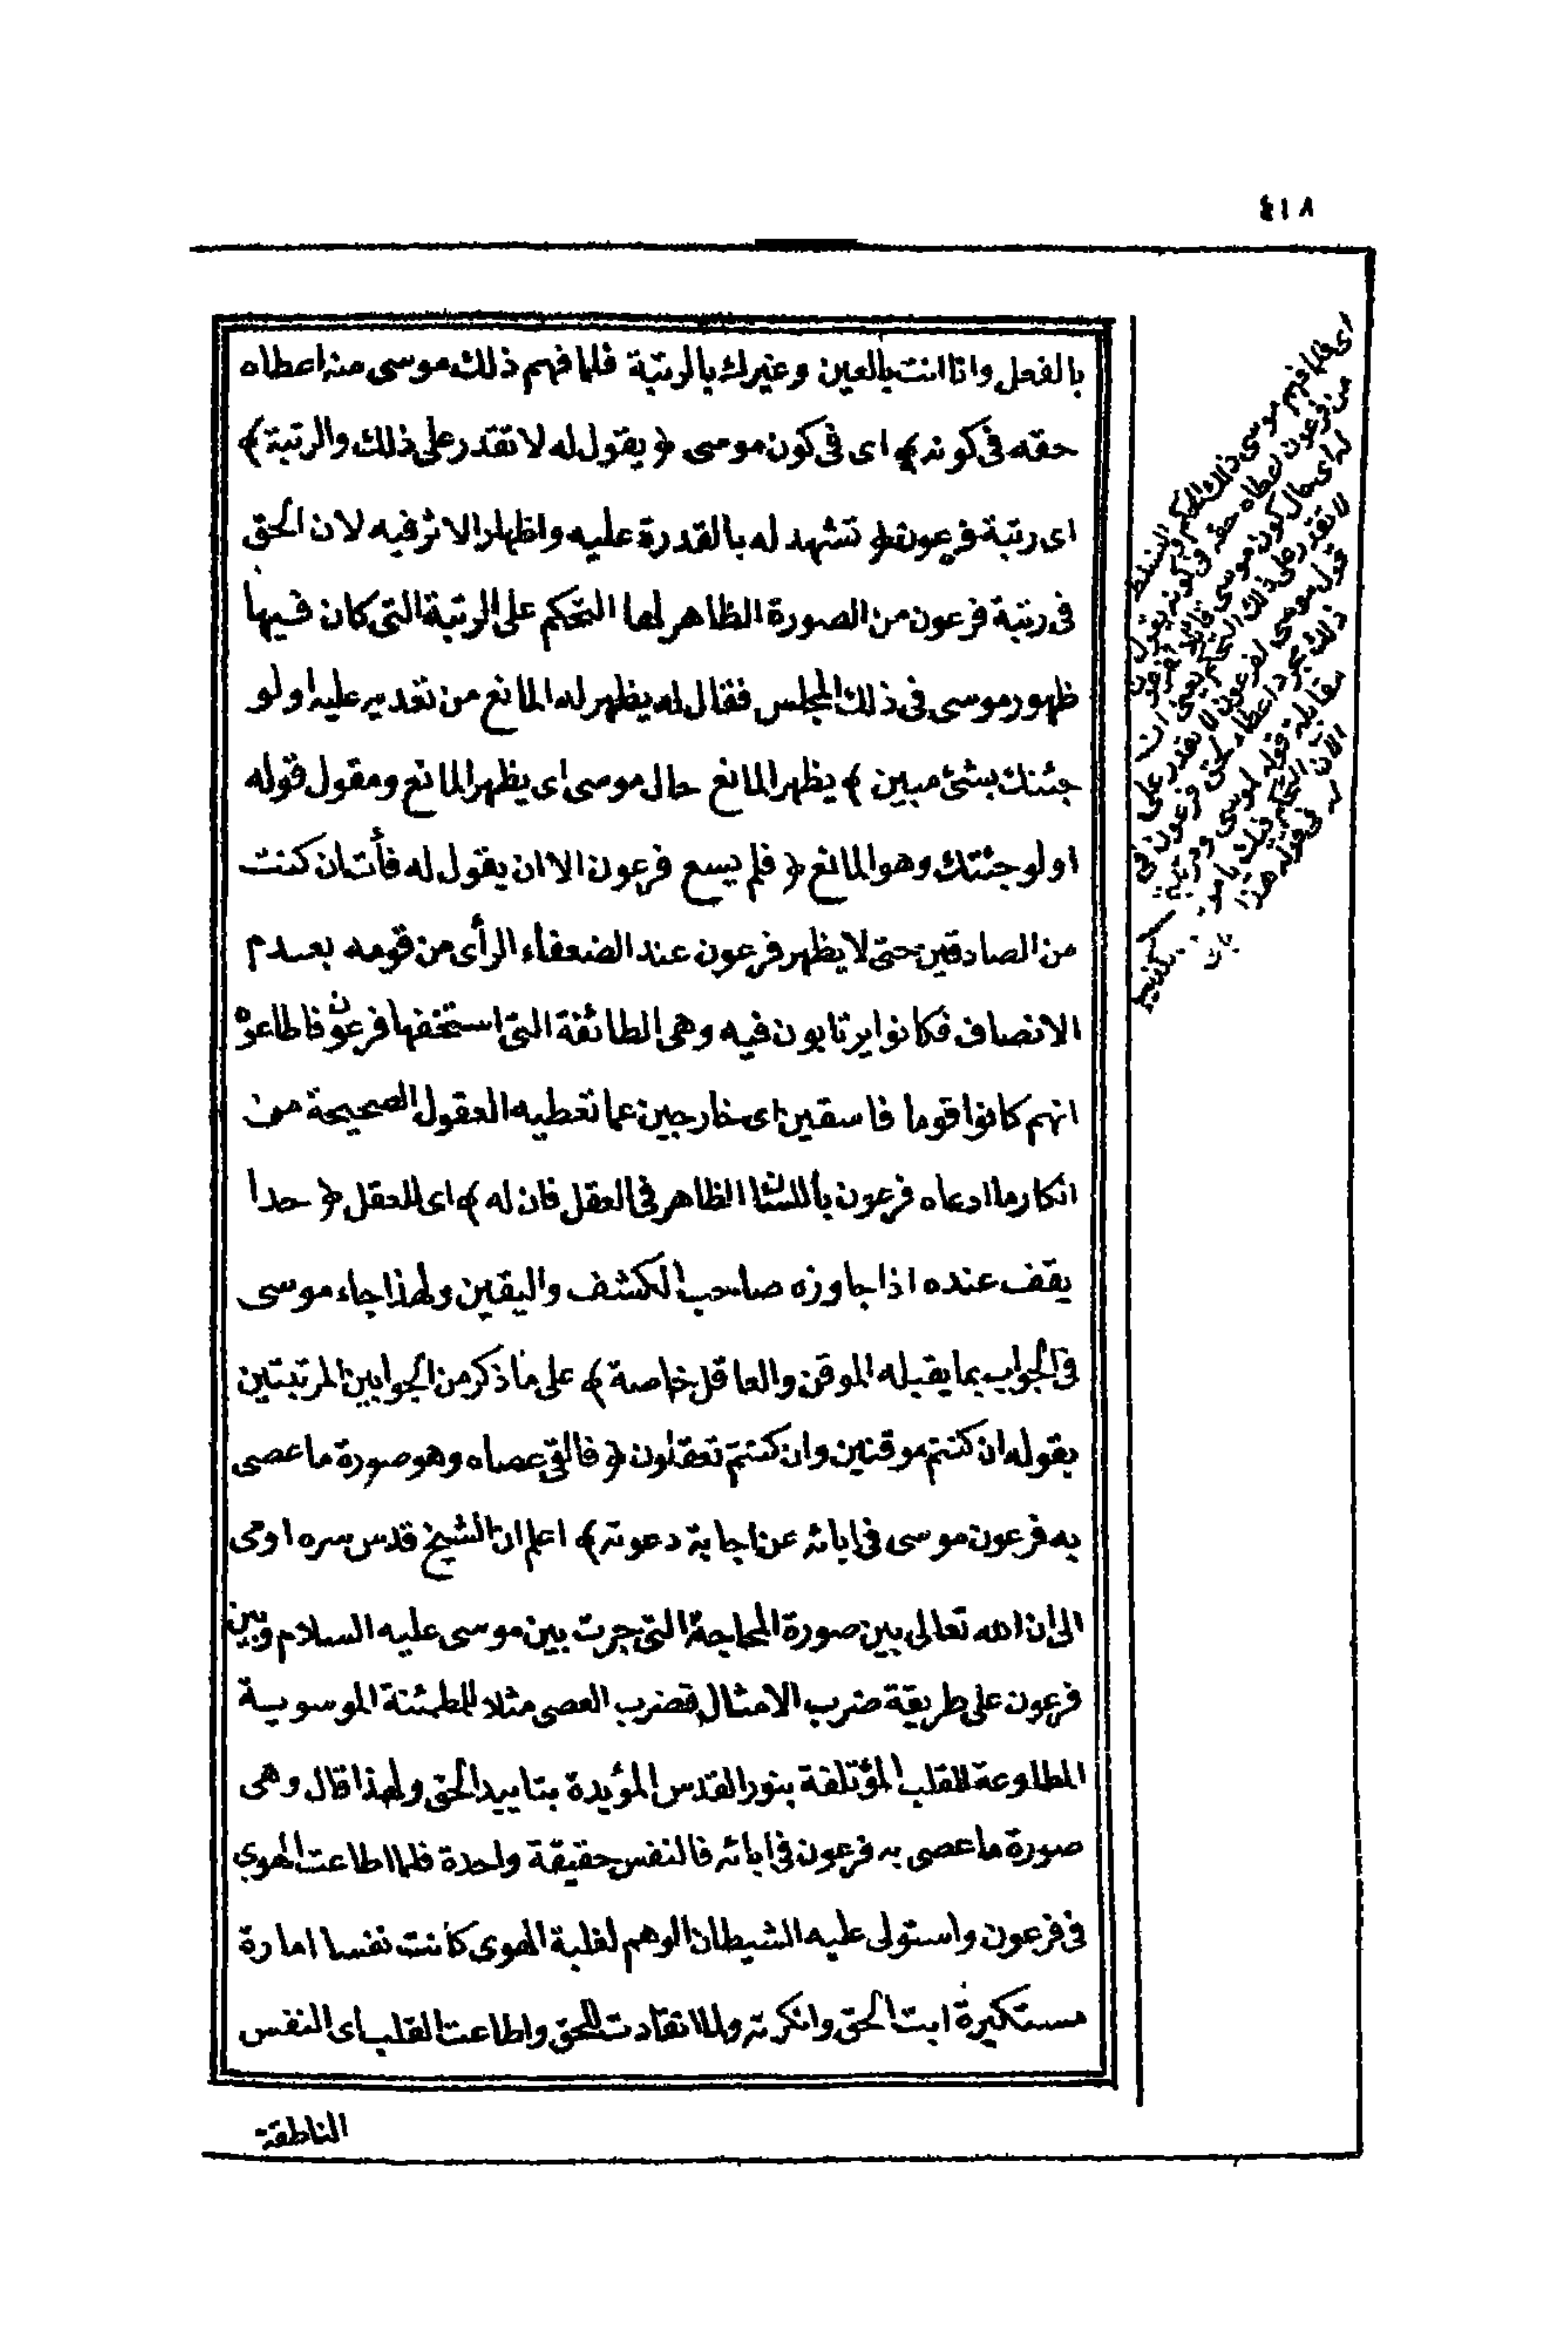 ٤١٨
بالفعل وانا انت بالعين وغيرك بالرتبة فلما فهم ذلك موسى منه اعطاه
حقه فى كونه ﴾ اى فى كون موسى ﴿ يقول له لا تقدر على ذلك والرتبة ﴾
اى رتبة فرعون ﴿ تشهد له بالقدرة عليه واظهار الاثر فيه لان الحق
فى رتبة فرعون من الصورة الظاهر لها التحكم على الرتبة التى كان فيها
ظهور موسى فى ذلك المجلس فقال له يظهر له المانع من تعديه عليه اولو
جئتك بشئ مبين ﴾ يظهر المانع حال موسى اى يظهر المانع ومقول قوله
اولو جئتك وهو المانع ﴿ فلم يسع فرعون الا ان يقول له فأت ان كنت
من الصادقين حتى لا يظهر فرعون عند الضعفاء الرأى من قومه بعدم
الانصاف فكانوا يرتابون فيه وهى الطائفة التى استخفها فرعون فاطاعوه
انهم كانوا قوما فاسقين اى خارجين عما تعطيه العقول الصحيحة من
انكار ما ادعاه فرعون باللسان الظاهر فى العقل فان له ﴾ اى للعقل ﴿ حدا
يقف عنده اذا جاوزه صاحب الكشف واليقين ولهذا جاء موسى
فى الجواب بما يقبله الموقن والعاقل خاصة ﴾ على ما ذكر من الجوابين المرتبتين
بقوله ان كنتم موقنين وان كنتم تعقلون ﴿ فالقى عصاه وهو صورة ما عصى
به فرعون موسى فى ابائه عن اجابة دعوته ﴾ اعلم ان الشيخ قدس سره اومى
الى ان الله تعالى بين صورة المحاجة التى جرت بين موسى عليه السلام وبين
فرعون على طريقة ضرب الامثال فضرب العصى مثلا للمطمئنة الموسوية
المطاوعة للقلب المؤتلفة بنور القدس المؤيدة بتاييد الحق ولهذا قال وهى
صورة ما عصى به فرعون فى ابائه فالنفس حقيقة واحدة فلما اطاعت الهوى
فى فرعون واستولى عليه الشيطان الوهم لغلبة الهوى كانت نفسا امارة
مستكبرة ابت الحق وانكرته ولما انقادت للحق واطاعت القلب اى النفس
الناطقة
اى فلما فهم موسى ذلك الحكم والتسلط
من فرعون اعطاه حقه فى كونه يقول
له اى حال كون موسى قائلا لفرعون
لا تقدر على ذلك التحكم يعنى ان
قول موسى لفرعون لا تقدر على
ذلك مجرد اعطاء لحق فرعون فى
مقابلة قوله لموسى ورتبتى
الآن التحكم فيك يا موسى